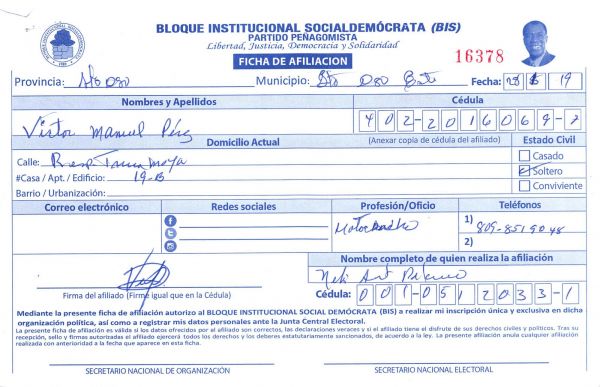 BLOQUE INSTITUCIONAL SOCIALDEMÓCRATA (BIS)
PARTIDO PEÑAGOMISTA
Libertad, Justicia, Democracia y Solidaridad
FICHA DE AFILIACION
16378
Provincia: Sto Dgo Municipio: Sto Dgo Este Fecha: 19
Nombres y Apellidos Cédula
Victor Manuel Pérez 402-2016069-7
Domicilio Actual (Anexar copia de cédula del afiliado) Estado Civil
Calle: Resp. Maya Casado
#Casa / Apt. / Edificio: 19-B Soltero
Barrio / Urbanización: Conviviente
Correo electrónico Redes sociales Profesión/Oficio Teléfonos
1) 809-851 9048
2)
Nombre completo de quien realiza la afiliación
Firma del afiliado (Firme igual que en la Cédula) Cédula: 001-0512033-1
Mediante la presente ficha de afiliación autorizo al BLOQUE INSTITUCIONAL SOCIAL DEMÓCRATA (BIS) a realizar mi inscripción única y exclusiva en dicha
organización política, así como a registrar mis datos personales ante la Junta Central Electoral.
La presente ficha de afiliación es valida si los datos ofrecidos por el afiliado son correctos, las declaraciones veraces y si el afiliado tiene el disfrute de sus derechos civiles y políticos. Tras su
recepción, sello y firmas autorizadas el afiliado ejercerá todos los derechos y los deberes estatutariamente sancionados, de acuerdo a la ley. La presente afiliación anula cualquier afiliación
realizada con anterioridad a la fecha que aparece en esta ficha.
SECRETARIO NACIONAL DE ORGANIZACIÓN SECRETARIO NACIONAL ELECTORAL